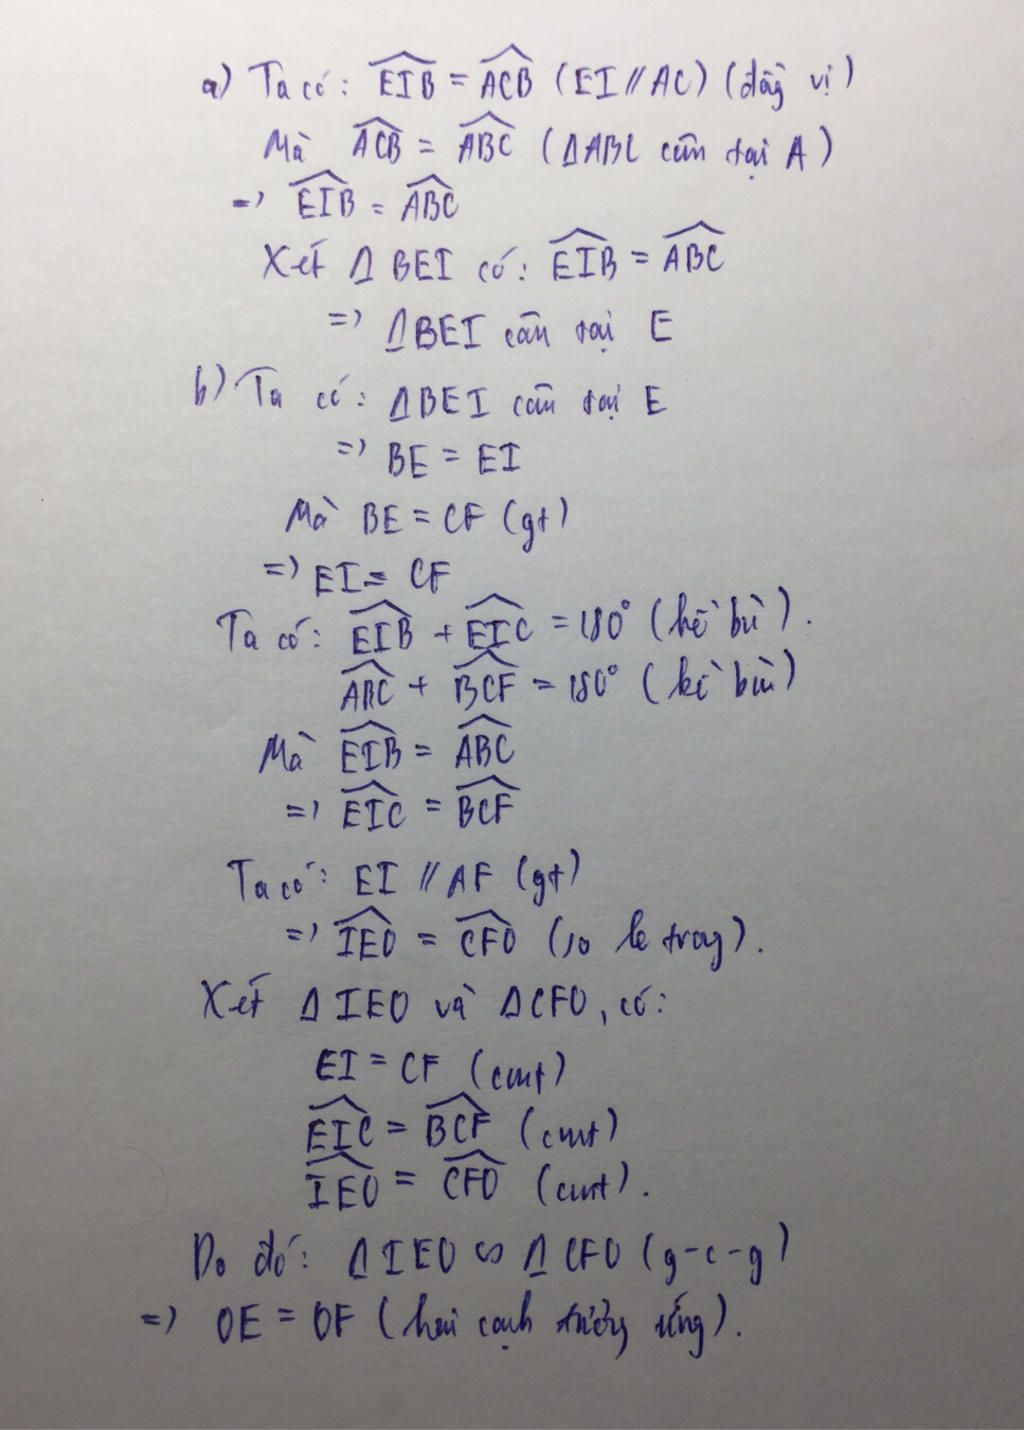 a) Ta có: EIB = ACB (EI // AC) (đồng vị)
Mà ACB = ABC (ΔABC cân tại A)
=> EIB = ABC
Xét Δ BEI có: EIB = ABC
=> ΔBEI cân tại E
b) Ta có: ΔBEI cân tại E
=> BE = EI
Mà BE = CF (gt)
=> EI = CF
Ta có: EIB + EIC = 180° (kề bù).
ABC + BCF = 180° (kề bù)
Mà EIB = ABC
=> EIC = BCF
Ta có: EI // AF (gt)
=> IEO = CFO (so le trong).
Xét Δ IEO và ΔCFO, có:
EI = CF (cmt)
EIC = BCF (cmt)
IEO = CFO (cmt).
Do đó: Δ IEO ∽ Δ CFO (g-c-g)
=> OE = OF (hai cạnh tương ứng).